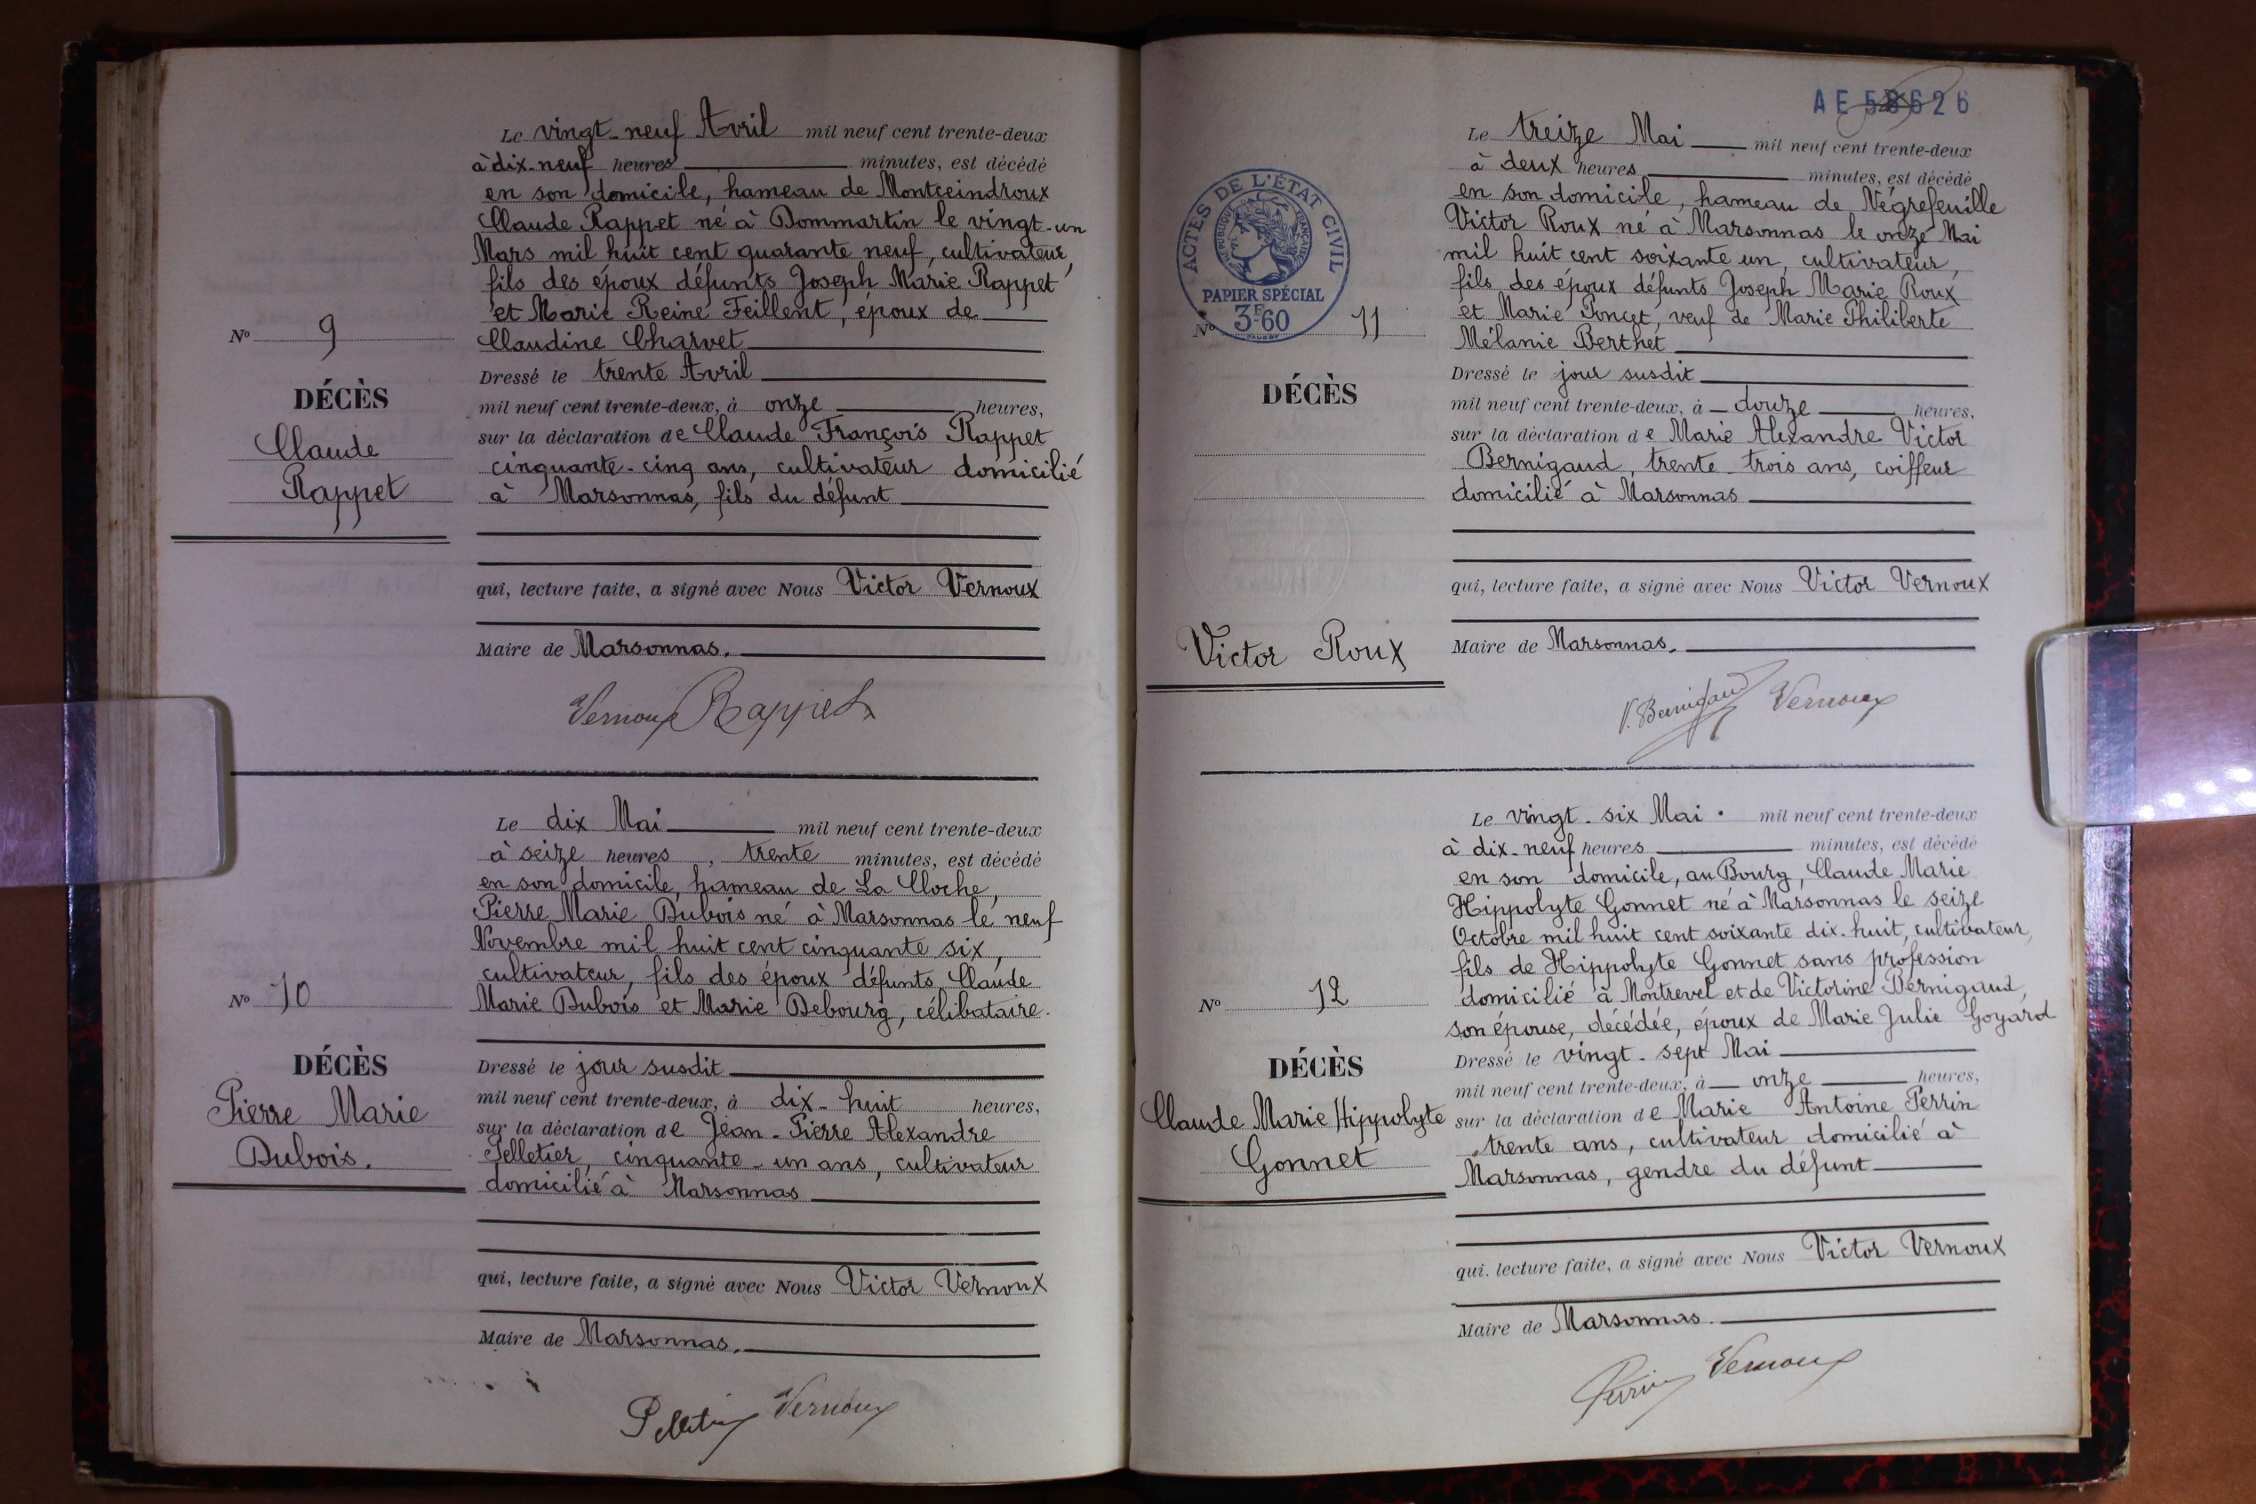 Le vingt-neuf Avril mil neuf cent trente-deux
à dix-neuf heures minutes, est décédé
en son domicile, hameau de Montceindroux
Claude Rappet né à Dommartin le vingt-un
Mars mil huit cent quarante neuf, cultivateur,
fils des époux défunts Joseph Marie Rappet
et Marie Reine Feillent, époux de
Claudine Charvet
Nº 9
DÉCÈS
Claude
Rappet
Dressé le trente Avril
mil neuf cent trente-deux, à onze heures,
sur la déclaration de Claude François Rappet
cinquante-cinq ans, cultivateur domicilié
à Marsonnas, fils du défunt
qui, lecture faite, a signé avec Nous Victor Vernoux
Maire de Marsonnas.
Vernoux Rappet
Le dix Mai mil neuf cent trente-deux
à seize heures, trente minutes, est décédé
en son domicile, hameau de La Cloche,
Pierre Marie Dubois né à Marsonnas le neuf
Novembre mil huit cent cinquante six,
cultivateur, fils des époux défunts Claude
Marie Dubois et Marie Debourg, célibataire.
Nº 10
DÉCÈS
Pierre Marie
Dubois.
Dressé le jour susdit
mil neuf cent trente-deux, à dix-huit heures,
sur la déclaration de Jean-Pierre Alexandre
Pelletier, cinquante-un ans, cultivateur
domicilié à Marsonnas
qui, lecture faite, a signé avec Nous Victor Vernoux
Maire de Marsonnas.
Pelletier Vernoux
AE 58626
Le treize Mai mil neuf cent trente-deux
à deux heures minutes, est décédé
en son domicile, hameau de Négrefeuille
Victor Roux né à Marsonnas le onze Mai
mil huit cent soixante un, cultivateur,
fils des époux défunts Joseph Marie Roux
et Marie Poncet, veuf de Marie Philiberte
Mélanie Berthet
ACTES DE L'ÉTAT CIVIL
RÉPUBLIQUE FRANÇAISE
PAPIER SPÉCIAL
3F60
Nº 11
DÉCÈS
Victor Roux
Dressé le jour susdit
mil neuf cent trente-deux, à douze heures,
sur la déclaration de Marie Alexandre Victor
Bernigaud, trente-trois ans, coiffeur
domicilié à Marsonnas
qui, lecture faite, a signé avec Nous Victor Vernoux
Maire de Marsonnas.
V. Bernigaud Vernoux
Le vingt-six Mai. mil neuf cent trente-deux
à dix-neuf heures minutes, est décédé
en son domicile, au Bourg, Claude Marie
Hippolyte Gonnet né à Marsonnas le seize
Octobre mil huit cent soixante dix-huit, cultivateur,
fils de Hippolyte Gonnet sans profession
domicilié à Montrevel et de Victorine Bernigaud,
son épouse, décédée, époux de Marie Julie Goyard
Nº 12
DÉCÈS
Claude Marie Hippolyte
Gonnet
Dressé le vingt-sept Mai
mil neuf cent trente-deux, à onze heures,
sur la déclaration de Marie Antoine Perrin
trente ans, cultivateur domicilié à
Marsonnas, gendre du défunt
qui, lecture faite, a signé avec Nous Victor Vernoux
Maire de Marsonnas.
Perrin Vernoux